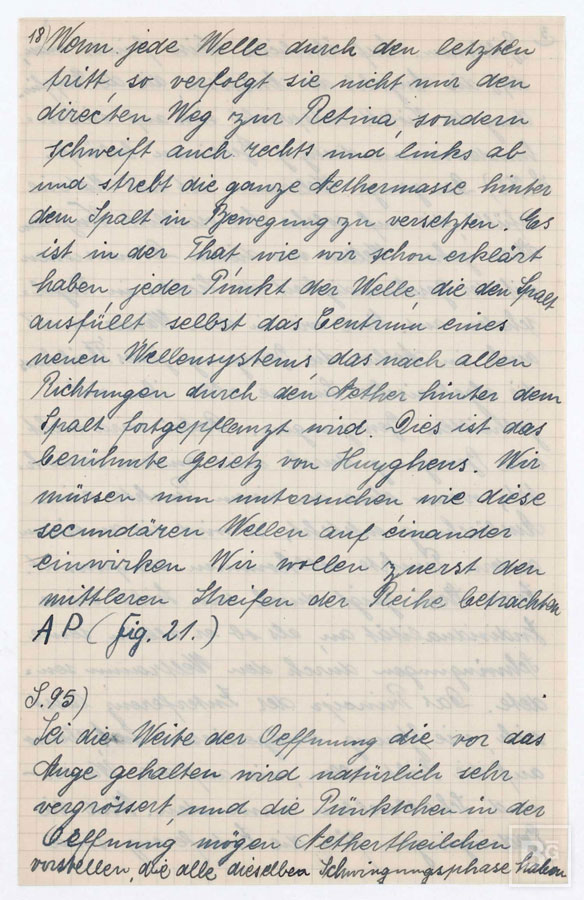 18) Wenn jede Welle durch den letzten
tritt, so verfolgt sie nicht nur den
directen Weg zur Retina, sondern
schweift auch rechts und links ab
und strebt die ganze Aethermasse hinter
dem Spalt in Bewegung zu versetzten. Es
ist in der That wie wir schon erklärt
haben jeder Punkt der Welle, die den Spalt
ausfüllt selbst das Centrum eines
neuen Wellensystems, das nach allen
Richtungen durch den Aether hinter dem
Spalt fortgepflanzt wird. Dies ist das
berühmte Gesetz von Huyghens. Wir
müssen nun untersuchen wie diese
secundären Wellen auf einander
einwirken Wir wollen zuerst den
mittleren Streifen der Reihe betrachten
AP (fig. 21.)
S. 95)
Sei die Weite der Oeffnung die vor das
Auge gehalten wird natürlich sehr
vergrössert, und die Pünktchen in der
Oeffnung mögen Aethertheilchen
vorstellen, die alle dieselben Schwingungsphase haben